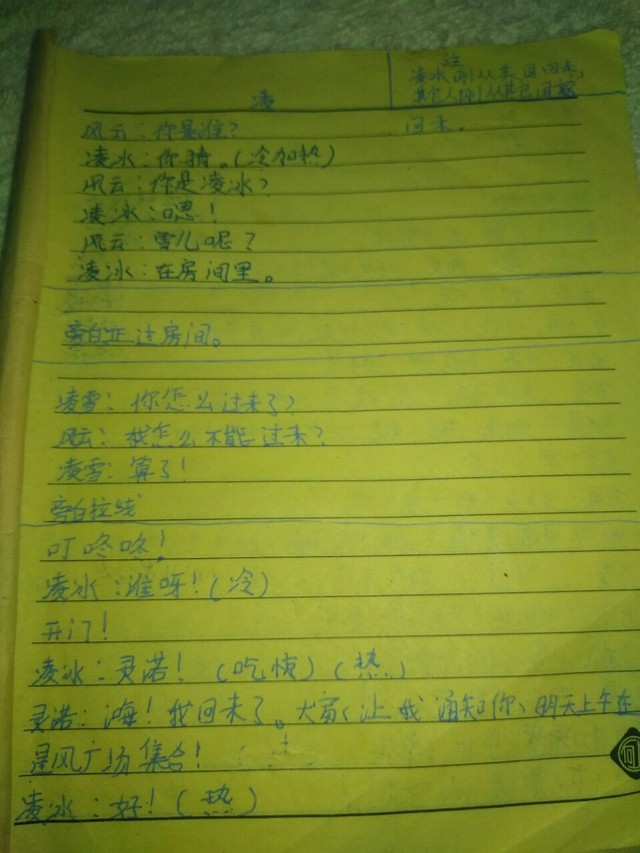 注
凌冰刚从英国回来,
其它人刚从其它国家
回来.
凌
风云:你是谁?
凌冰:你猜。(冷加热)
风云:你是凌冰?
凌冰:嗯!
风云:雪儿呢?
凌冰:在房间里。
旁白 进房间。
凌雪:你怎么过来了?
风云:我怎么不能过来?
凌雪:算了!
旁白拉线
叮咚咚!
凌冰:谁呀!(冷)
开门!
凌冰:灵诺!(吃惊)(热)
灵诺:海!我回来了。大 让我通知你、明天上午在
星风广场集合!
凌冰:好!(热)